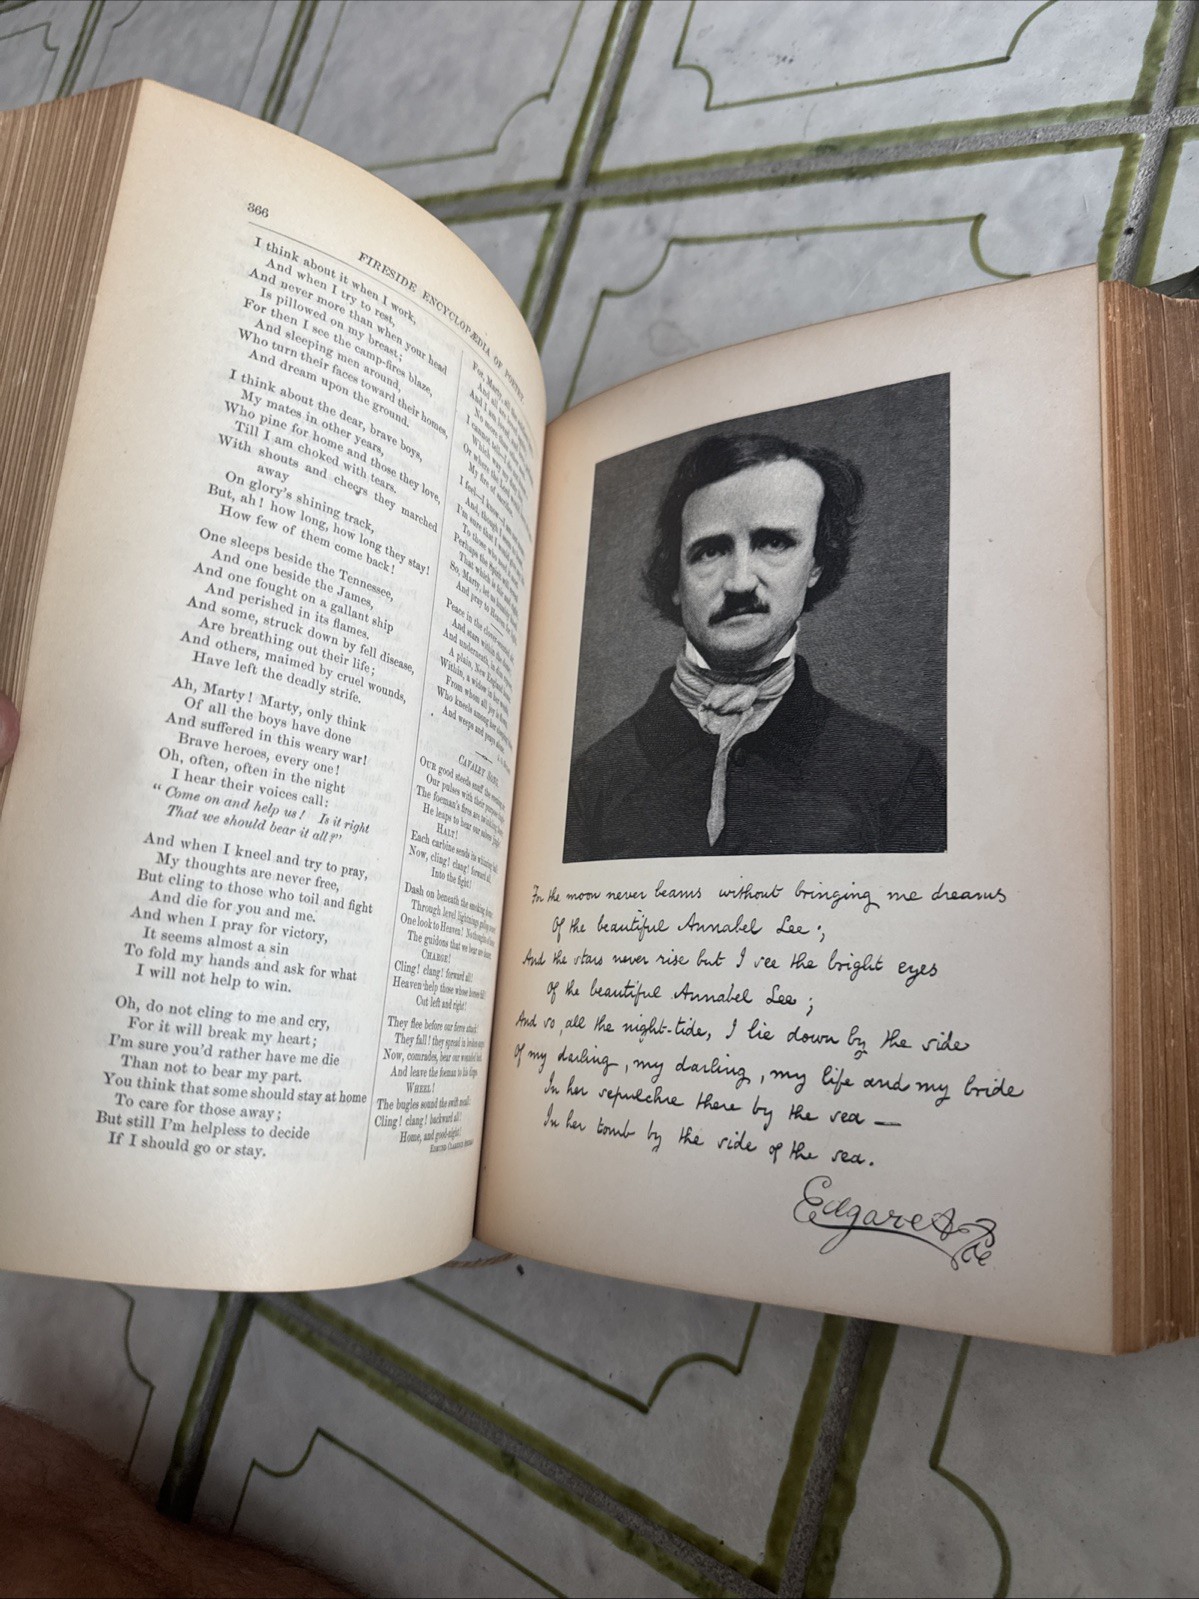 366
FIRESIDE ENCYCLOPÆDIA OF POETRY
I think about it when I work,
And when I try to rest,
And never more than when your head
Is pillowed on my breast;
For then I see the camp-fires blaze,
And sleeping men around,
Who turn their faces toward their homes,
And dream upon the ground.
I think about the dear, brave boys,
My mates in other years,
Who pine for home and those they love,
Till I am choked with tears.
With shouts and cheers they marched
away
On glory's shining track,
But, ah! how long, how long they stay!
How few of them come back!
One sleeps beside the Tennessee,
And one beside the James,
And one fought on a gallant ship
And perished in its flames.
And some, struck down by fell disease,
Are breathing out their life;
And others, maimed by cruel wounds,
Have left the deadly strife.
Ah, Marty! Marty, only think
Of all the boys have done
And suffered in this weary war!
Brave heroes, every one!
Oh, often, often in the night
I hear their voices call:
"Come on and help us! Is it right
That we should bear it all?"
And when I kneel and try to pray,
My thoughts are never free,
But cling to those who toil and fight
And die for you and me.
And when I pray for victory,
It seems almost a sin
To fold my hands and ask for what
I will not help to win.
Oh, do not cling to me and cry,
For it will break my heart;
I'm sure you'd rather have me die
Than not to bear my part.
You think that some should stay at home
To care for those away;
But still I'm helpless to decide
If I should go or stay.
For, Marty, all the
And all
And I am
No more
I cannot tell
Which way
Or where the
My
I feel—I know
And, though I
I'm sure that I
To those who
Perhaps the
That which is
So, Marty, let us
And pray to Heaven
Peace in the clover-scented
And stars within the
And underneath, in dim
A plain, New England
Within, a widow in her
From whom all joy is
Who kneels among her
And weeps and prays
CAVALRY SONG.
OUR good steeds snuff the evening air,
Our pulses with their purpose
The foeman's fires are twinkling
He leaps to hear our
HALT!
Each carbine sends its whizzing ball:
Now, cling! clang! forward all,
Into the fight!
Dash on beneath the smoking dome:
Through level lightnings gallop
One look to Heaven! No thoughts of home:
The guidons that we bear are
CHARGE!
Cling! clang! forward all!
Heaven help those whose horses fall!
Cut left and right!
They flee before our fierce attack!
They fall! they spread in broken surge.
Now, comrades, bear our wounded back,
And leave the foeman to his dirge.
WHEEL!
The bugles sound the swift recall:
Cling! clang! backward all!
Home, and good-night!
EDMUND CLARENCE STEDMAN
For the moon never beams without bringing me dreams
Of the beautiful Annabel Lee;
And the stars never rise but I see the bright eyes
Of the beautiful Annabel Lee;
And so, all the night-tide, I lie down by the side
Of my darling, my darling, my life and my bride
In her sepulchre there by the sea —
In her tomb by the side of the sea.
Edgar A Poe